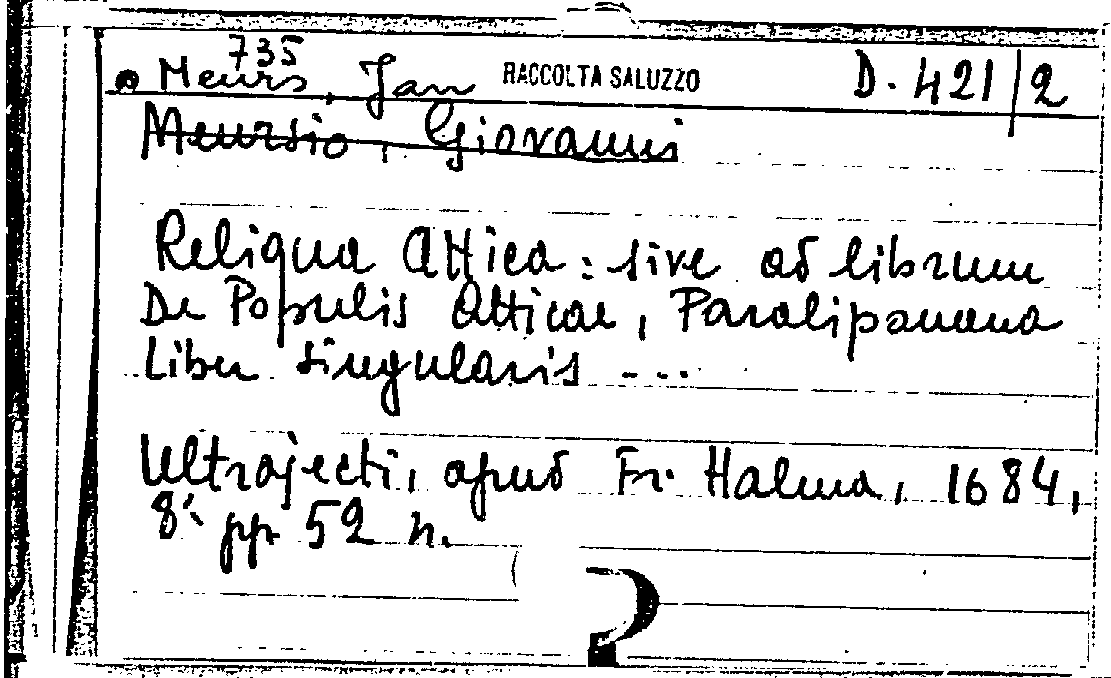 735
Meurs, Jan RACCOLTA SALUZZO D. 421/2
Meursio, Giovanni
Reliqua Attica: sive ad librum
De Populis Atticae, Paralipomena
Liber singularis ---
Ultrajecti, apud Fr. Halma, 1684,
8º pp. 52 n.